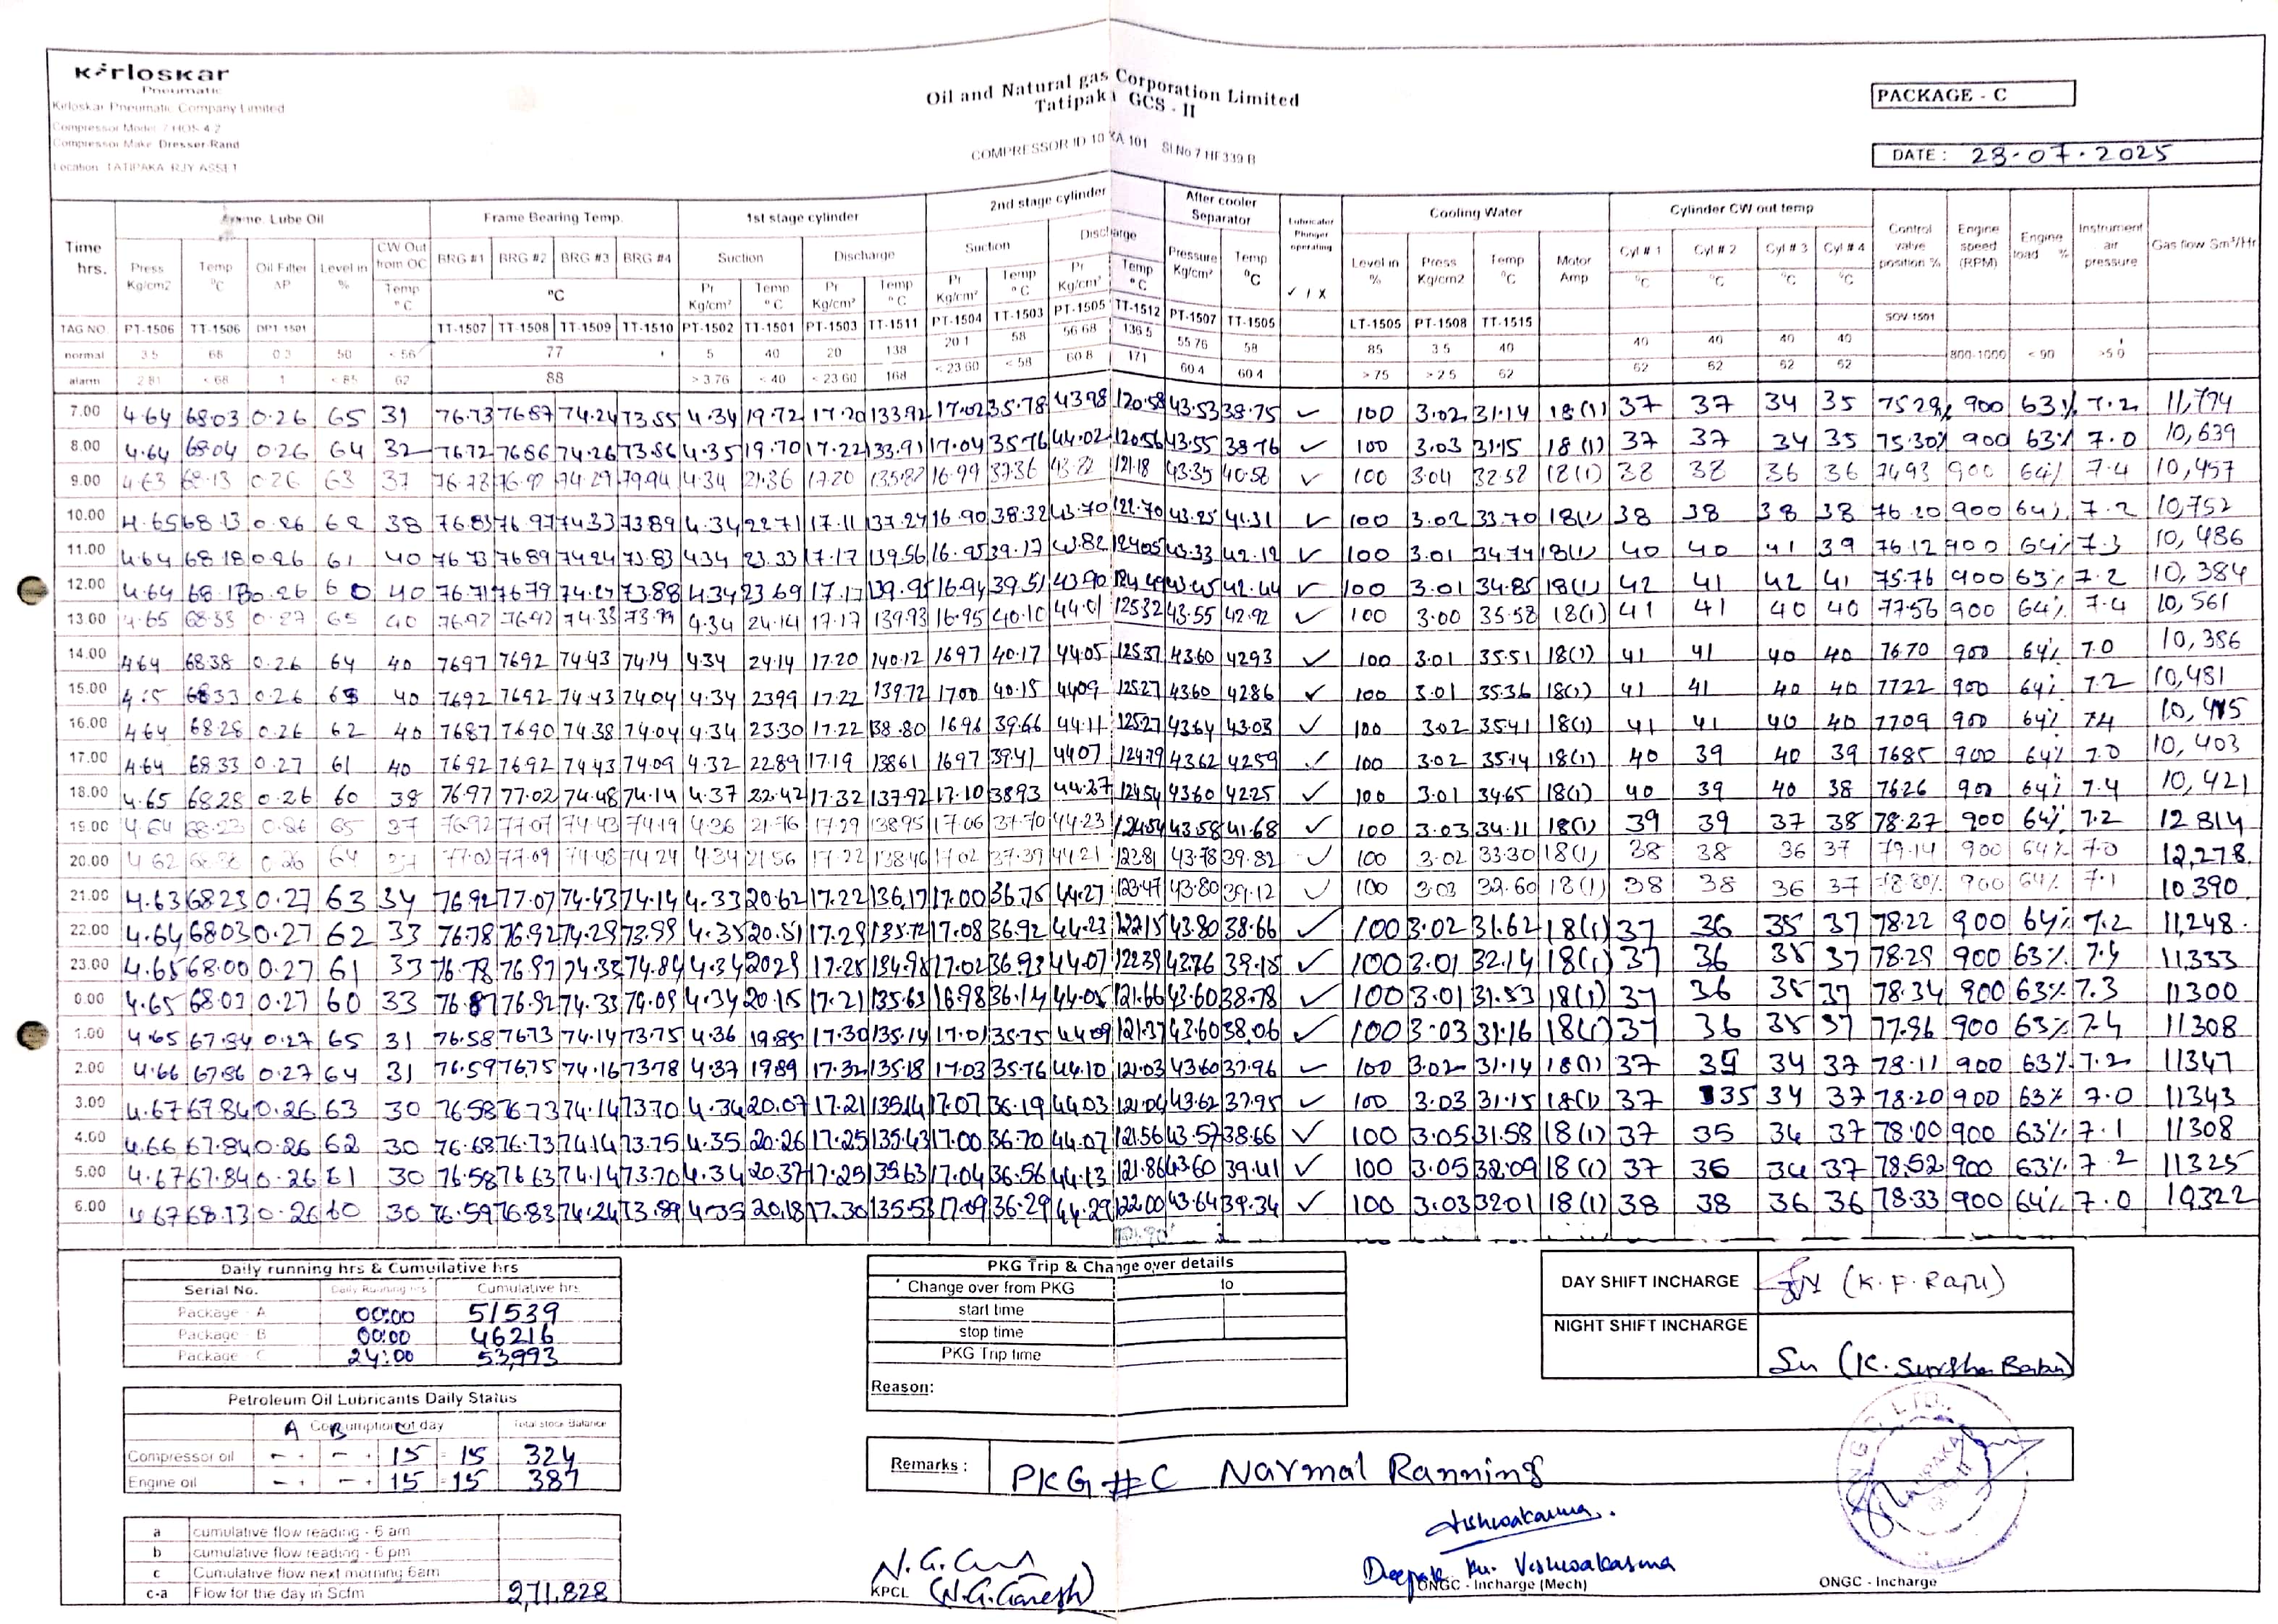 Kirloskar
Pneumatic
Kirloskar Pneumatic Company Limited
Compressor Model 7 HOS 4 2
Compressor Make Dresser-Rand
Location TATIPAKA RJY ASSET
Oil and Natural gas Corporation Limited
Tatipaka GCS - II
COMPRESSOR ID 10 KA 101 Sl No 7 HF 339 B
PACKAGE - C
DATE : 23.07.2025
Time hrs. Frame Lube Oil Frame Bearing Temp. 1st stage cylinder 2nd stage cylinder After cooler Separator Lubricator Plunger operating Cooling Water Cylinder CW out temp Control valve position % Engine speed (RPM) Engine load % Instrument air pressure Gas flow Sm³/Hr
Press Kg/cm2 Temp °C Oil Filter ΔP Level in % CW Out from OC Temp °C BRG #1 BRG #2 BRG #3 BRG #4 °C Suction Discharge Suction Discharge Pressure Kg/cm² Temp °C ✓ / X Level in % Press Kg/cm2 Temp °C Motor Amp Cyl # 1 Cyl # 2 Cyl # 3 Cyl # 4
Pr Kg/cm² Temp °C Pr Kg/cm² Temp °C Pr Kg/cm² Temp °C Pr Kg/cm² Temp °C °C °C °C °C
TAG NO. PT-1506 TT-1506 DPT 1501 TT-1507 TT-1508 TT-1509 TT-1510 PT-1502 TT-1501 PT-1503 TT-1511 PT-1504 TT-1503 PT-1505 TT-1512 PT-1507 TT-1505 LT-1505 PT-1508 TT-1515 SOV-1501
normal 3.5 68 0.3 50 < 56 77 5 40 20 138 20 1 58 56 68 136 5 55 76 58 85 3 5 40 40 40 40 40 800-1000 < 90 >5 0
alarm 2 81 < 68 1 < 85 62 88 > 3 76 < 40 < 23 60 168 < 23 60 < 58 60 8 171 60 4 60 4 > 75 > 2 5 62 62 62 62 62
7.00 4.64 68.03 0.26 65 31 76.73 7687 74.24 73.55 4.34 19.72 17.20 133.92 17.02 35.78 4398 120.58 43.53 38.75 ✓ 100 3.02 31.14 18(1) 37 37 34 35 7529% 900 63% 7.2 11,794
8.00 4.64 68.04 0.26 64 32 7672 7686 74.26 73.86 4.35 19.70 17.22 133.91 17.04 35.76 44.02 120.56 43.55 38.76 ✓ 100 3.03 31.15 18(1) 37 37 34 35 75.30% 900 63% 7.0 10,639
9.00 4.63 68.13 0.26 63 37 76.78 74.29 79.94 4.34 21.36 17.20 135.87 16.99 37.36 43.82 121.18 43.35 40.58 ✓ 100 3.04 32.58 18(1) 38 38 36 36 7493 900 64% 7.4 10,457
10.00 4.65 68.13 0.26 62 38 76.83 76.97 7433 7389 4.34 2271 17.11 137.27 16.90 38.32 43.70 122.70 43.25 41.31 ✓ 100 3.02 33.70 18(1) 38 38 38 38 76.20 900 64% 7.2 10,752
11.00 4.64 68.18 0.26 61 40 76 73 7689 7424 73.83 434 23.33 17.17 139.56 16.95 39.17 43.82 12405 43.33 42.12 ✓ 100 3.01 34.74 18(1) 40 40 41 39 76.12 900 64% 7.3 10,486
12.00 4.64 68.18 0.26 60 40 76.71 7679 74.27 73.88 4.34 23 69 17.17 139.95 16.94 39.51 43.90 42.44 ✓ 100 3.01 34.85 18(1) 42 41 42 41 75.76 900 63% 7.2 10,384
13.00 4.65 68.33 0.27 65 40 76.92 76.92 74.33 73.99 4.34 24.14 17.17 139.93 16.95 40.10 44.01 12532 43.55 42.92 ✓ 100 3.00 35.58 18(1) 41 41 40 40 77.56 900 64% 7.4 10,561
14.00 4.64 68.38 0.26 64 40 7697 7692 74.43 74.14 4.34 24.14 17.20 140.12 1697 40.17 44.05 125.37 4360 4293 ✓ 100 3.01 35.51 18(1) 41 41 40 40 76.70 900 64% 7.0 10,386
15.00 68.33 0.26 63 40 7692 7692 74.43 7404 4.34 2399 17.22 139.72 1700 40.15 4409 12527 4360 4286 ✓ 100 3.01 35.36 18(1) 41 41 40 40 7722 900 64% 7.2 10,481
16.00 4.64 68.28 0.26 62 40 7687 7690 74.38 74.04 4.34 23.30 17.22 138.80 1696 39.66 44.11 12527 4364 43.03 ✓ 100 3.02 3541 18(1) 41 41 40 40 7709 900 64% 74
17.00 4.64 68.33 0.27 61 40 7692 7692 74.43 74.09 4.32 2289 17.19 13861 1697 39.41 4407 12479 4362 4259 ✓ 100 3.02 35.14 18(1) 40 39 40 39 7685 900 64% 7.0 10,403
18.00 4.65 68.28 0.26 60 38 7697 77.02 74.48 74.14 4.37 22.42 17.32 137.92 17.10 3893 44.27 12454 4360 4225 ✓ 100 3.01 34.65 18(1) 40 39 40 38 7626 900 64% 7.4 10,421
19.00 4.64 68.23 0.26 65 37 76.92 77.07 74.43 74.19 4.36 21.76 17.29 13895 17.06 37.70 44.23 12454 43.58 41.68 ✓ 100 3.03 34.11 18(1) 39 39 37 38 78.27 900 64% 7.2 12814
20.00 4.62 0.26 64 37 77.02 77.09 74.48 74.24 4.34 21.56 17.22 138.46 17.02 37.39 44.21 12281 43.78 39.82 ✓ 100 3.02 33.30 18(1) 38 38 36 37 79.14 900 64% 7.0 12,278
21.00 4.63 68 23 0.27 63 34 76.92 77.07 74.43 74.14 4.33 20.62 17.22 136.17 17.00 36.75 44.27 123.47 43.80 39.12 ✓ 100 3.03 32.60 18(1) 38 38 36 37 78.80% 900 64% 7.1 10390
22.00 4.64 6803 0.27 62 33 76.78 76.92 74.29 73.99 4.35 20.51 17.29 135.72 17.08 36.92 44.23 12215 43.80 38.66 ✓ 100 3.02 31.62 18(1) 37 36 35 37 78.22 900 64% 7.2 11,248
23.00 4.65 68.00 0.27 61 33 76.78 76.97 74.33 74.84 4.34 2029 17.28 134.98 17.02 36.93 44.07 12239 43.76 39.18 ✓ 100 3.01 32.14 18(1) 37 36 35 37 78.29 900 63% 7.4 11,333
0.00 4.65 68.03 0.27 60 33 76.87 76.92 74.33 74.09 4.34 20.15 17.21 135.63 16.98 36.14 44.05 121.66 43.60 38.78 ✓ 100 3.01 31.53 18(1) 37 36 35 37 78.34 900 63% 7.3 11300
1.00 4.65 67.94 0.27 65 31 76.58 7673 74.14 73.75 4.36 19.85 17.30 135.14 17.01 35.75 4409 121.37 43.60 38.06 ✓ 100 3.03 31.16 18(1) 37 36 35 37 77.96 900 63% 7.4 11308
2.00 4.66 67.86 0.27 64 31 76.59 76.75 74.16 7378 4.37 1989 17.32 135.18 17.03 35.76 44.10 121.03 4360 37.96 ✓ 100 3.02 31.14 18(1) 37 34 37 78.11 900 63% 7.2 11347
3.00 4.67 67.84 0.26 63 30 76.58 76.73 74.14 73.70 4.34 20.07 17.21 135.14 17.07 36.19 4403 121.04 43.62 37.95 ✓ 100 3.03 31.15 18(1) 37 35 34 37 78.20 900 63% 7.0 11343
4.00 4.66 67.84 0.26 62 30 76.68 76.73 74.14 73.75 4.35 20.26 17.25 135.43 17.00 36.70 44.07 121.56 43.57 38.66 ✓ 100 3.05 31.58 18(1) 37 35 34 37 78.00 900 63% 7.1 11308
5.00 4.67 67.84 0.26 61 30 76.58 76 63 74.14 73.70 4.34 20.37 17.25 135.63 17.04 36.56 44.13 121.86 43.60 39.41 ✓ 100 3.05 32.09 18(1) 37 36 34 37 78.52 900 63% 7.2 11325
6.00 4.67 68.13 0.26 60 30 76.59 76.83 74.24 73.89 4.35 20.18 17.30 135.53 17.09 36.29 44.29 122.00 43.64 39.34 ✓ 100 3.03 3201 18(1) 38 38 36 36 78.33 900 64% 7.0 10322
Daily running hrs & Cumulative hrs
Serial No. Daily Running hrs Cumulative hrs
Package - A 00:00 51539
Package B 00:00 46216
Package C 24:00 53,993
Petroleum Oil Lubricants Daily Status
A B C Consumption of day Total stock Balance
Compressor oil - . - . 15 = 15 324
Engine oil - . - . 15 = 15 387
a cumulative flow reading - 6 am
b cumulative flow reading - 6 pm
c Cumulative flow next morning 6am
c-a Flow for the day in Scfm 2,71,828
PKG Trip & Change over details
Change over from PKG to
start time
stop time
PKG Trip time
Reason:
DAY SHIFT INCHARGE (K. P. Raju)
NIGHT SHIFT INCHARGE (K. Suresha Babu)
Remarks : PKG #C Narmal Ranning
Vishwakarma
N.G.
KPCL (N.G.Ganesh)
Deepak Kr. Vishwakarma
ONGC - Incharge (Mech)
ONGC - Incharge